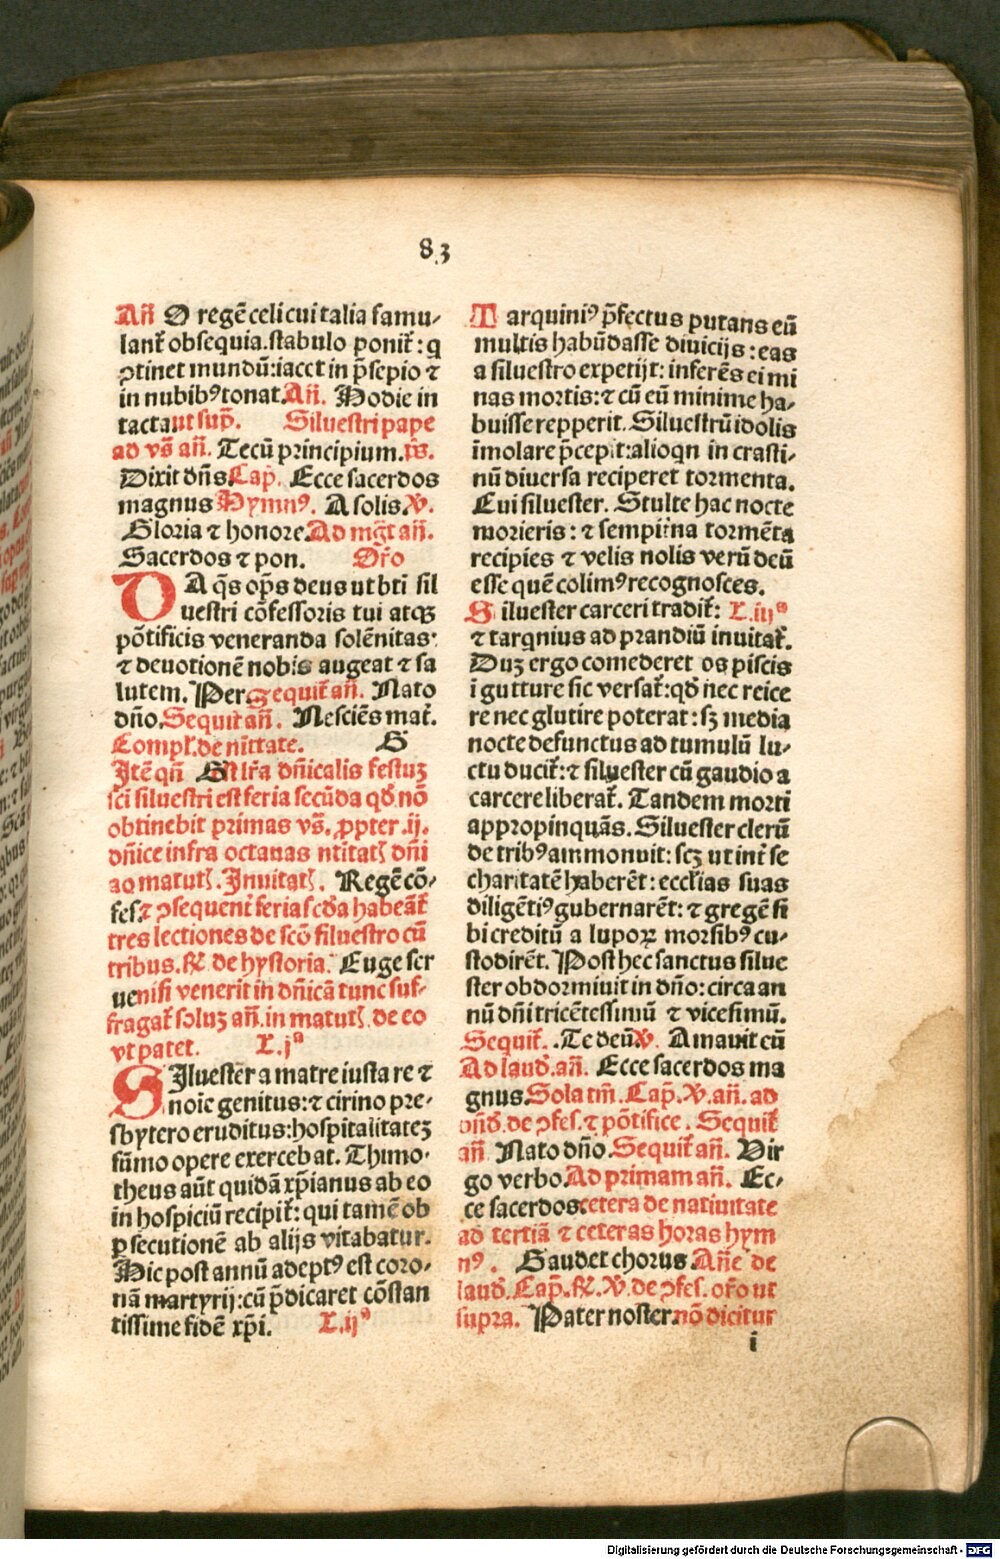 83
Añ O regē celi cui talia famu-
lant̄ obsequia. stabulo ponit̄: q
ꝯtinet mundū: iacet in p̄sepio ⁊
in nubibꝰ tonat. Añ. Hodie in
tacta ut sup̄. Siluestri pape
ad vs̄ añ. Tecū principium. p̄s.
Dixit dn̄s Cap̄. Ecce sacerdos
magnus Hymnꝰ. A solis ꝟ.
Gloria ⁊ honore. Ad mḡt añ.
Sacerdos ⁊ pon. Or̄o
DA q̄s op̄s deus ut bti sil
uestri cōfessoris tui atqꝫ
pōtificis veneranda solēnitas:
⁊ deuotionē nobis augeat ⁊ sa
lutem. Per Sequit̄ añ. Nato
dn̄o. Sequit̄ añ. Nesciēs mat̄.
Compl̄. de nītate. G
Itē qn̄ G est lr̄a dn̄icalis festuꝫ
sci siluestri est feria secūda qd̄ nō
obtinebit primas vs̄. ꝓpter .ij.
dn̄ice infra octauas ntītatꝭ dn̄i
ad matutꝭ. Inuitatꝭ. Regē cō-
fes. ⁊ ꝯsequent̄ feria scda habeāt̄
tres lectiones de scō siluestro cū
tribus. ℟. de hystoria. Euge ser
ue nisi venerit in dn̄icā tunc suf-
fragat̄ soluꝫ añ. in matutꝭ. de eo
vt patet. L. jᵃ
SIluester a matre iusta re ⁊
noīe genitus: ⁊ cirino pre-
sbytero eruditus: hospitalitateꝫ
sūmo opere exercebat. Thimo-
theus aūt quidā xp̄ianus ab eo
in hospiciū recipit̄: qui tamē ob
ꝑsecutionē ab alijs vitabatur.
Hic post annū adeptꝰ est coro-
nā martyrij: cū p̄dicaret cōstan
tissime fidē xp̄i. L. ijᵃ
Tarquiniꝰ p̄fectus putans eū
multis habūdasse diuicijs: eas
a siluestro expetijt: inferēs ei mi
nas mortis: ⁊ cū eū minime ha-
buisse repperit. Siluestrū idolis
īmolare p̄cepit: alioqn in crasti-
nū diuersa reciperet tormenta.
Cui siluester. Stulte hac nocte
morieris: ⁊ sempit̄na tormēta
recipies ⁊ velis nolis verū deū
esse quē colimꝰ recognosces.
Siluester carceri tradit̄: L. iijᵃ
⁊ tarqnius ad prandiū inuitat̄.
Duꝫ ergo comederet os piscis
i gutture sic versat̄: qd̄ nec reice
re nec glutire poterat: sꝫ media
nocte defunctus ad tumulū lu-
ctu ducit̄: ⁊ siluester cū gaudio a
carcere liberat̄. Tandem morti
appropinquās. Siluester clerū
de tribꝰ ammonuit: scꝫ ut int̄ se
charitatē haberēt: ecclīas suas
diligētiꝰ gubernarēt: ⁊ gregē si
bi creditū a lupoꝝ morsibꝰ cu-
stodirēt. Post hec sanctus silue
ster obdormiuit in dn̄o: circa an
nū dn̄i tricētessimū ⁊ vicesimū.
Sequit̄. Te deū ꝟ. Amauit eū
Ad laud̄. añ. Ecce sacerdos ma
gnus. Sola tm̄. Cap̄. ꝟ. añ. ad
bn̄d̄. de ꝯfes. ⁊ pōtifice. Sequit̄
añ Nato dn̄o. Sequit̄ añ. Vir
go verbo. Ad primam añ. Ec-
ce sacerdos. cetera de natiuitate
ad tertiā ⁊ ceteras horas hym
nꝰ. Gaudet chorus Añe de
laud̄. Cap̄. ℟. ꝟ. de ꝯfes. or̄o ut
supra. Pater noster. nō dicitur
i
Digitalisierung gefördert durch die Deutsche Forschungsgemeinschaft - DFG